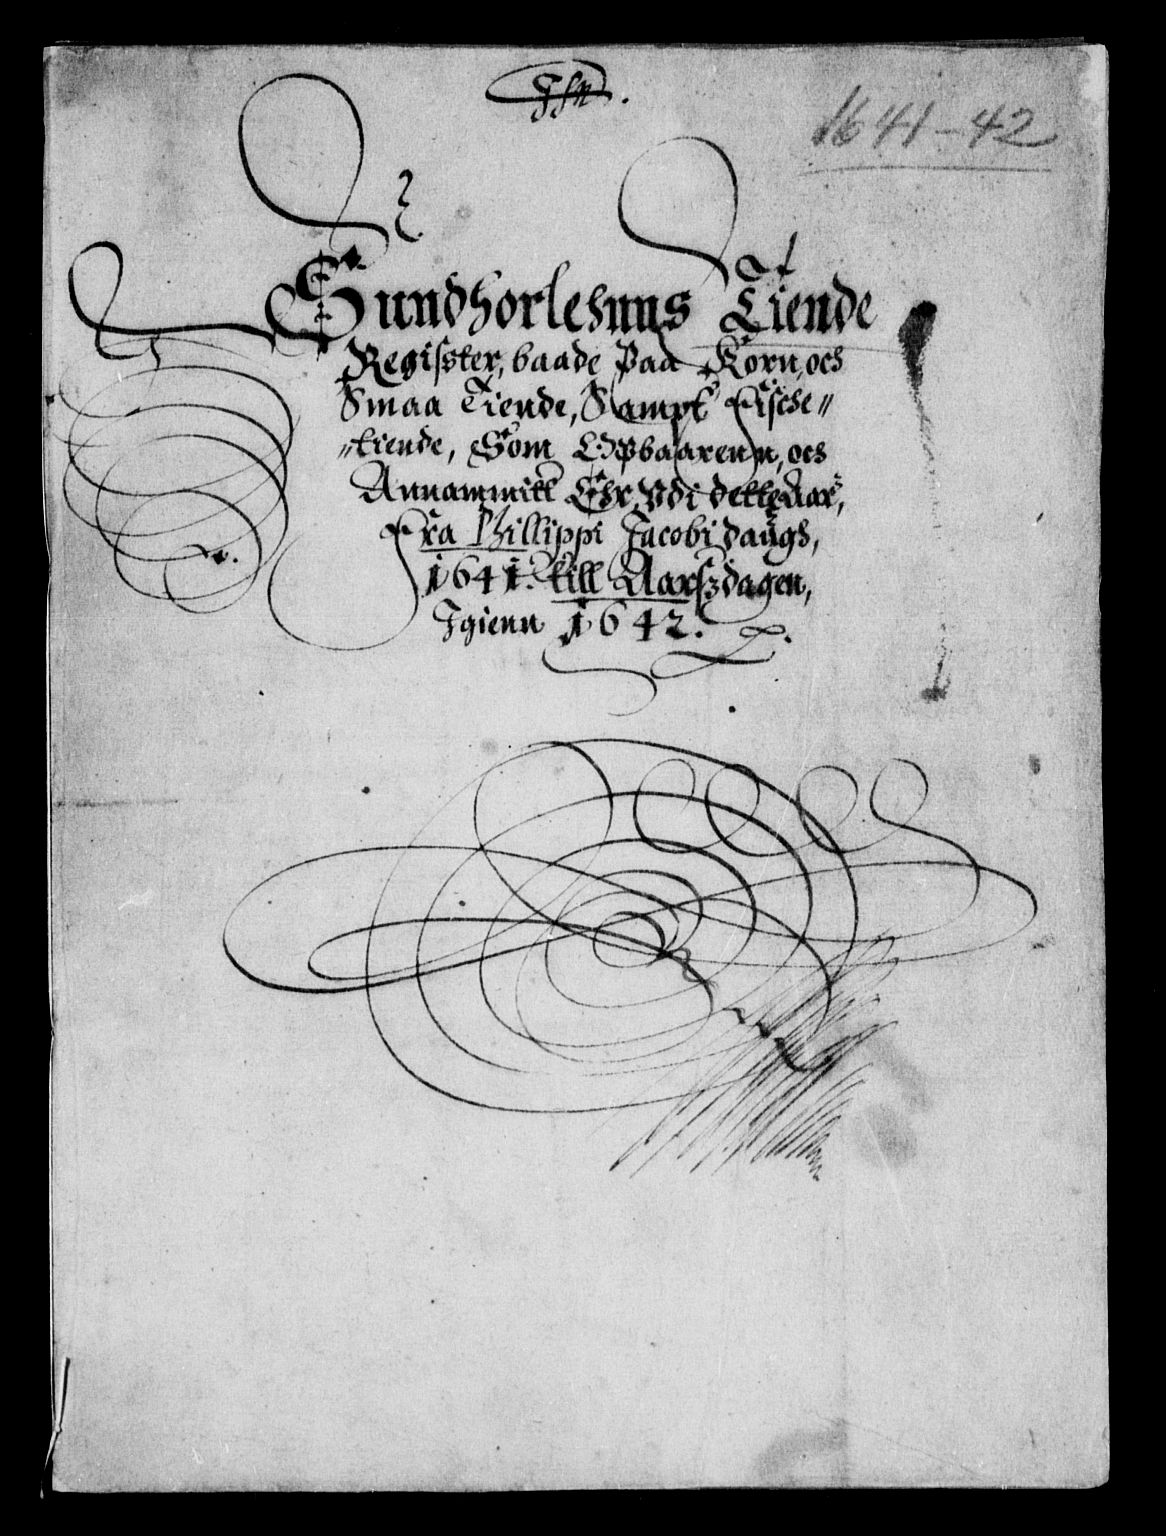 1641-42
Sundhorlehnns Tiende
Regisster, baade Paa Korn, och
Smaa Tiende, Sampt Fische〃
〃tiende, Som Opbaarenn, och
Annammitt Ehr Vdi dette Aar,
Fra Phillippi Jacobi daugs,
1641. till Aarszdagen,
Igienn 1642.